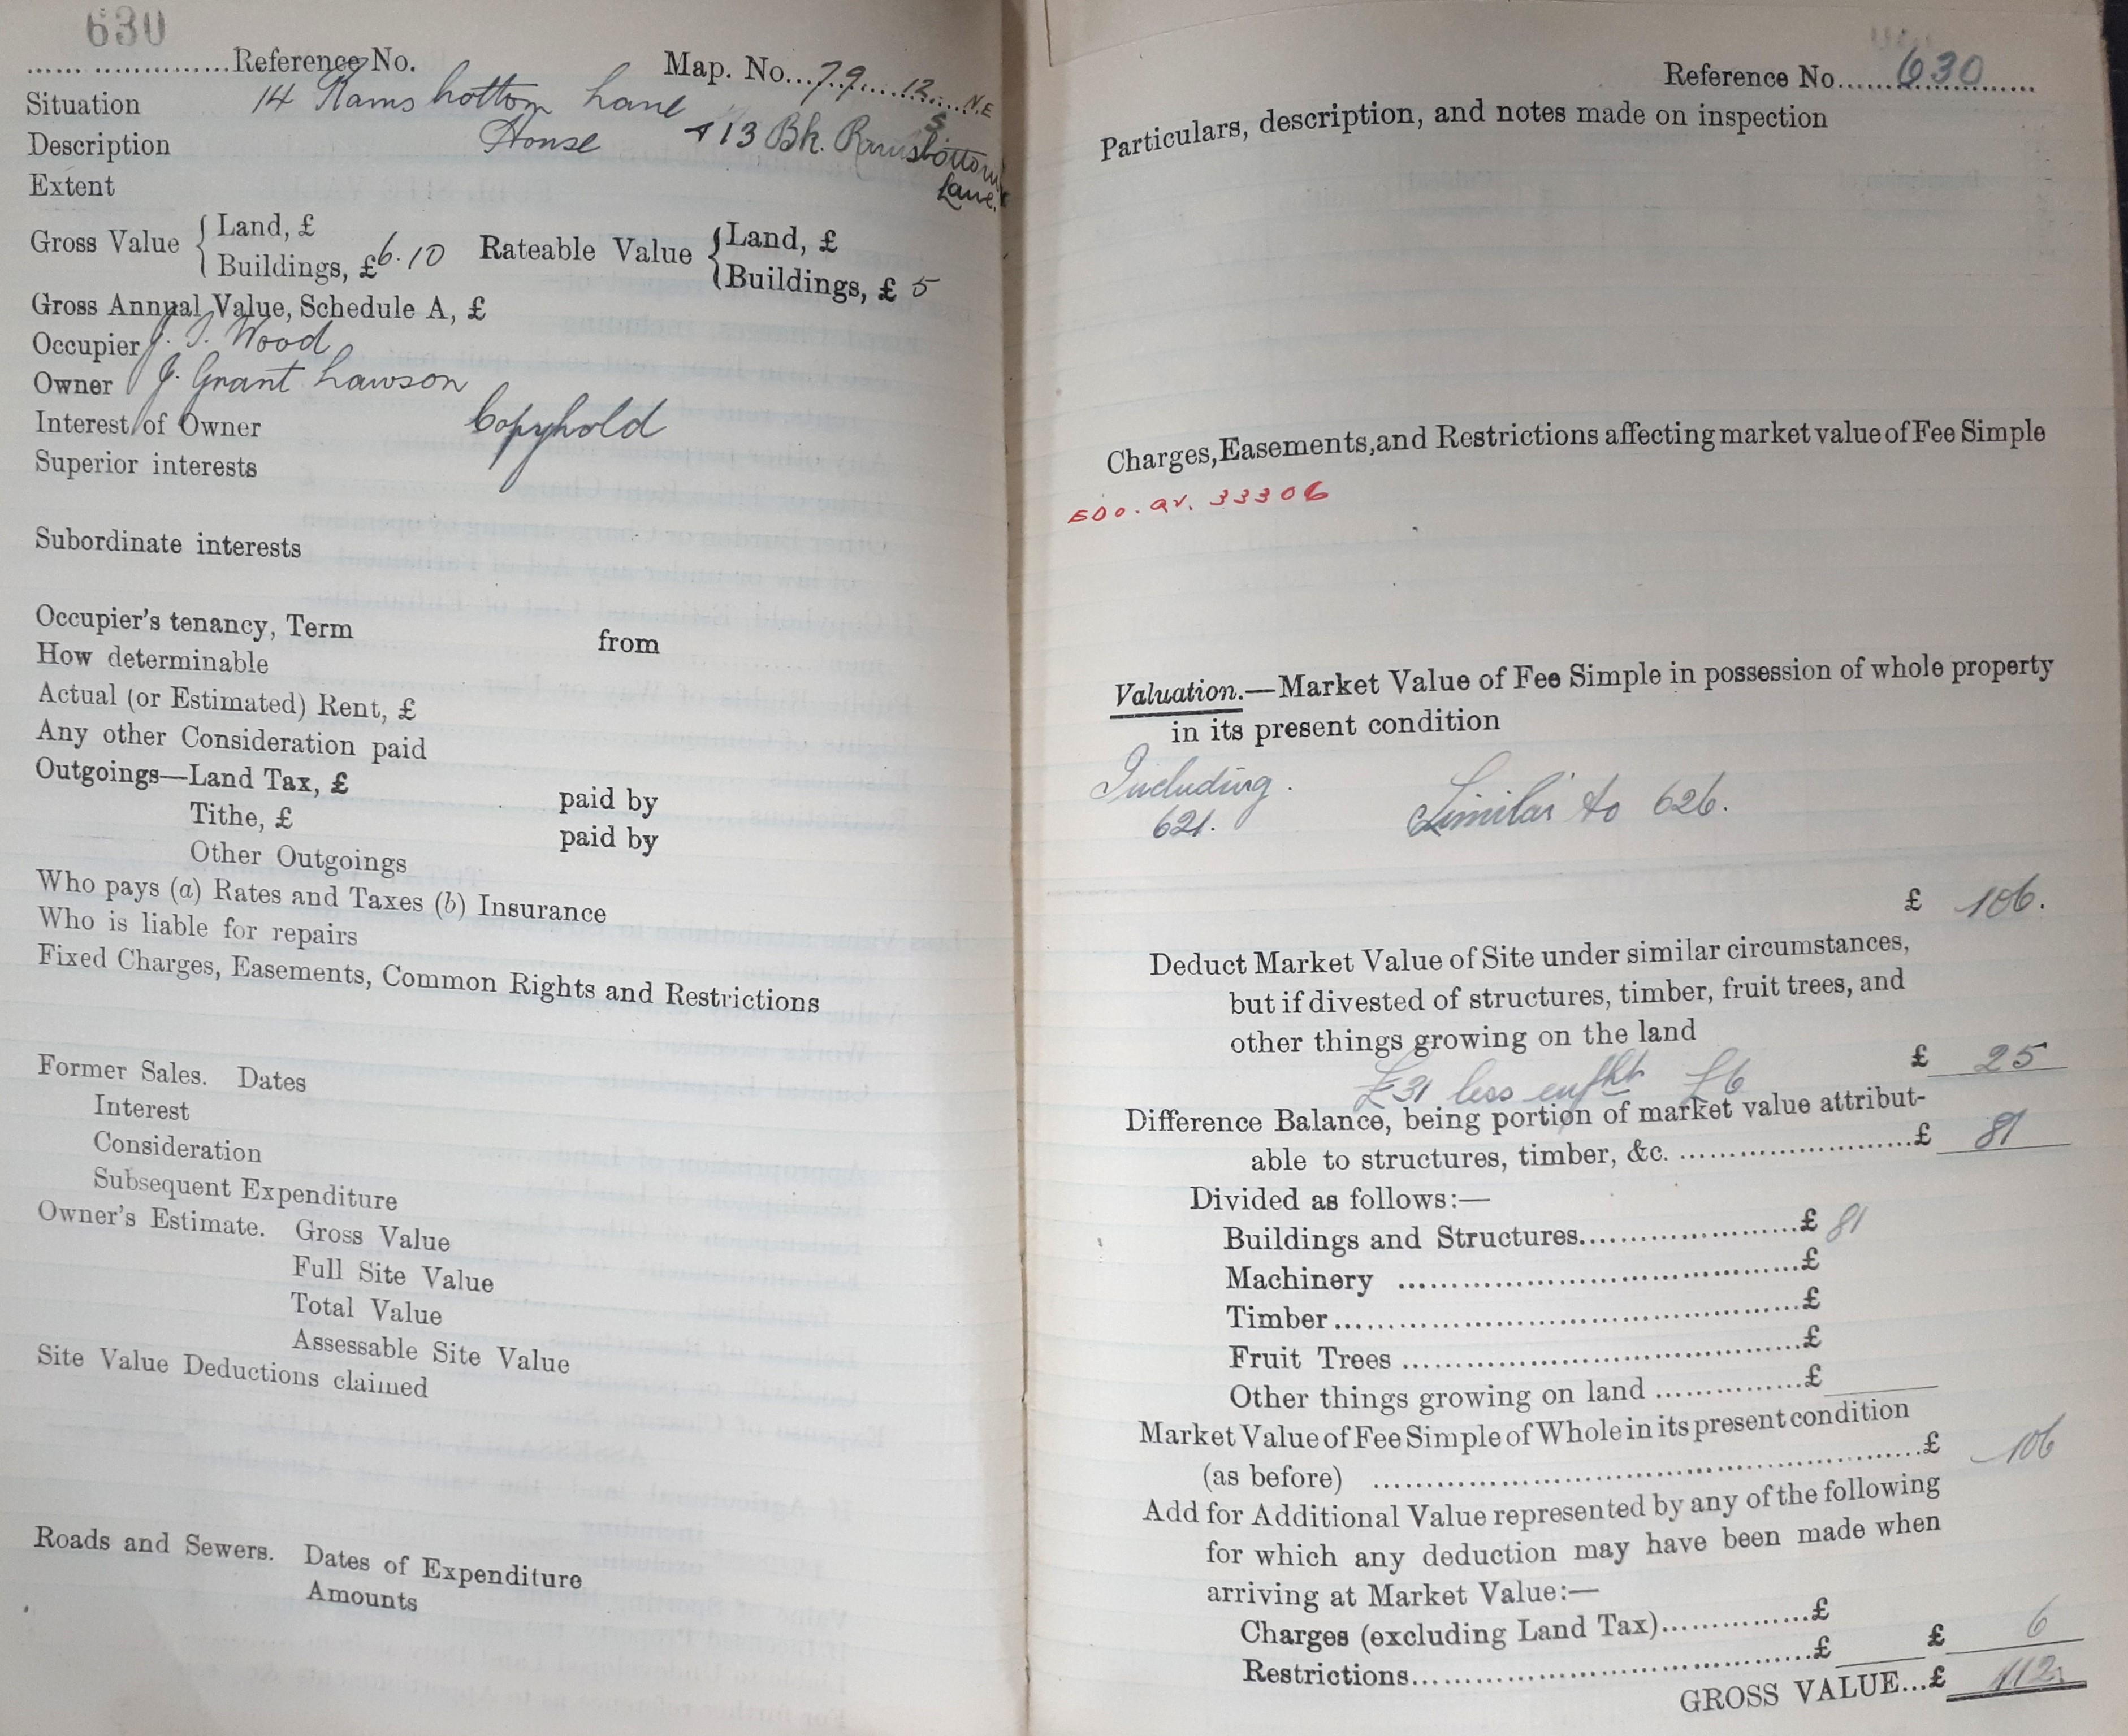 630
...................Reference No.
Map. No...79......12....N.E
S
Situation 14 Ramsbottom Lane
Description House + 13 Bk. Ramsbottom
Lane.
Extent
Gross Value { Land, £
Buildings, £6.10
Rateable Value { Land, £
Buildings, £ 5
Gross Annual Value, Schedule A, £
Occupier J. T. Wood
Owner J. Grant Lawson
Interest of Owner Copyhold
Superior interests
Subordinate interests
Occupier's tenancy, Term from
How determinable
Actual (or Estimated) Rent, £
Any other Consideration paid
Outgoings—Land Tax, £ paid by
Tithe, £ paid by
Other Outgoings
Who pays (a) Rates and Taxes (b) Insurance
Who is liable for repairs
Fixed Charges, Easements, Common Rights and Restrictions
Former Sales. Dates
Interest
Consideration
Subsequent Expenditure
Owner's Estimate. Gross Value
Full Site Value
Total Value
Assessable Site Value
Site Value Deductions claimed
Roads and Sewers. Dates of Expenditure
Amounts
Reference No......630......
Particulars, description, and notes made on inspection
Charges, Easements, and Restrictions affecting market value of Fee Simple
33306
Valuation.—Market Value of Fee Simple in possession of whole property
in its present condition
Including
621.
Similar to 626.
£ 106.
Deduct Market Value of Site under similar circumstances,
but if divested of structures, timber, fruit trees, and
other things growing on the land
£31 less enfht £6 £ 25
Difference Balance, being portion of market value attribut-
able to structures, timber, &c. ........................£ 81
Divided as follows:—
Buildings and Structures........................£ 81
Machinery ........................£
Timber........................£
Fruit Trees ........................£
Other things growing on land ...............£
Market Value of Fee Simple of Whole in its present condition
(as before) ........................£ 106
Add for Additional Value represented by any of the following
for which any deduction may have been made when
arriving at Market Value:—
Charges (excluding Land Tax)...............£
Restrictions........................£ £ 6
GROSS VALUE...£ 112